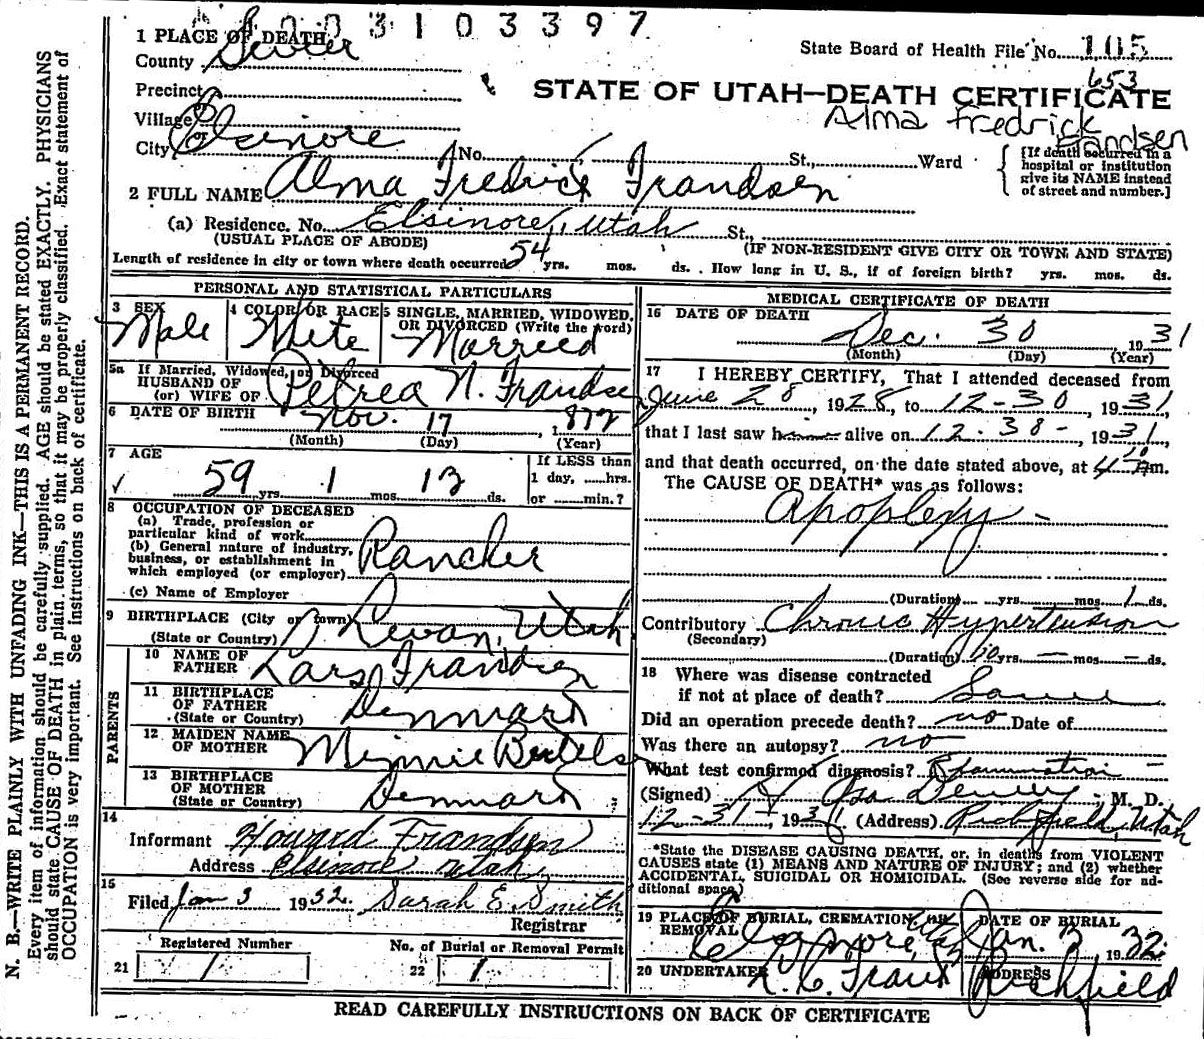 003103397
1 PLACE OF DEATH
State Board of Health File No. 105
County Sevier
653
Precinct
STATE OF UTAH—DEATH CERTIFICATE
Village
Alma Fredrick Frandsen
or
City Elsinore No. St., Ward
[If death occurred in a hospital or institution give its NAME instead of street and number.]
2 FULL NAME Alma Fredrick Frandsen
(a) Residence. No. Elsinore, Utah St.,
(USUAL PLACE OF ABODE) (IF NON-RESIDENT GIVE CITY OR TOWN AND STATE)
Length of residence in city or town where death occurred 54 yrs. mos. ds. How long in U. S., if of foreign birth? yrs. mos. ds.
PERSONAL AND STATISTICAL PARTICULARS
3 SEX Male
4 COLOR OR RACE
5 SINGLE, MARRIED, WIDOWED, OR DIVORCED (Write the word) Married
5a If Married, Widowed, or Divorced
HUSBAND OF
(or) WIFE OF Petrea N. Frandsen
6 DATE OF BIRTH Nov. 17, 1872
(Month) (Day) (Year)
7 AGE 59 yrs. 1 mos. 13 ds.
If LESS than
1 day, ......hrs.
or ........min.?
8 OCCUPATION OF DECEASED
(a) Trade, profession or
particular kind of work
(b) General nature of industry,
business, or establishment in
which employed (or employer) Rancher
(c) Name of Employer
9 BIRTHPLACE (City or town) Levan, Utah
(State or Country)
PARENTS
10 NAME OF
FATHER Lars Frandsen
11 BIRTHPLACE
OF FATHER Denmark
(State or Country)
12 MAIDEN NAME
OF MOTHER Minnie Bertelsen
13 BIRTHPLACE
OF MOTHER Denmark
(State or Country)
14
Informant Howard Frandsen
Address Elsinore Utah
15
Filed Jan 3 1932. Sarah E. Smith
Registrar
Registered Number
21 1
No. of Burial or Removal Permit
22 1
MEDICAL CERTIFICATE OF DEATH
16 DATE OF DEATH
Dec. 30 1931
(Month) (Day) (Year)
17 I HEREBY CERTIFY, That I attended deceased from
June 28, 1928, to 12-30, 1931
that I last saw him alive on 12-30-, 1931,
and that death occurred, on the date stated above, at m.
The CAUSE OF DEATH* was as follows:
Apoplexy -
(Duration) yrs. mos. 1 ds.
Contributory Chronic Hypertension
(Secondary)
(Duration) 10 yrs. — mos. — ds.
18 Where was disease contracted
if not at place of death? Same
Did an operation precede death? no Date of
Was there an autopsy? no
What test confirmed diagnosis? Examination -
(Signed) Dewey M. D.
12-31, 1931 (Address) Richfield, Utah
*State the DISEASE CAUSING DEATH, or, in deaths from VIOLENT
CAUSES state (1) MEANS AND NATURE OF INJURY; and (2) whether
ACCIDENTAL, SUICIDAL OR HOMICIDAL. (See reverse side for ad-
ditional space.)
19 PLACE OF BURIAL, CREMATION, OR
REMOVAL Elsinore, Utah
DATE OF BURIAL
Jan. 3 1932
20 UNDERTAKER
ADDRESS
Richfield
READ CAREFULLY INSTRUCTIONS ON BACK OF CERTIFICATE
N. B.—WRITE PLAINLY WITH UNFADING INK—THIS IS A PERMANENT RECORD.
Every item of information should be carefully supplied. AGE should be stated EXACTLY. PHYSICIANS
should state CAUSE OF DEATH in plain terms, so that it may be properly classified. Exact statement of
OCCUPATION is very important. See instructions on back of certificate.